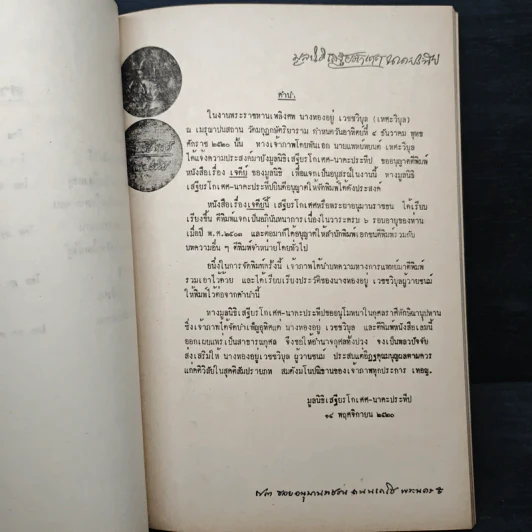 มูลนิธิเสฐียรโกเศศ-นาคะประทีป
คำนำ
ในงานพระราชทานเพลิงศพ นางทองอยู่ เวชชวิบูล (เทศะวิบูล)
ณ เมรุฌาปนสถาน วัดมกุฏกษัตริยาราม กำหนดวันอาทิตย์ที่ ๔ ธันวาคม พุทธ
ศักราช ๒๕๒๐ นั้น ทางเจ้าภาพโดยพันเอก นายแพทย์พยนต์ เทศะวิบูล
ได้แจ้งความประสงค์มายังมูลนิธิเสฐียรโกเศศ-นาคะประทีป ขออนุญาตตีพิมพ์
หนังสือเรื่อง เจดีย์ ของมูลนิธิ เพื่อแจกเป็นอนุสรณ์ในงานนี้ ทางมูลนิธิ
เสฐียรโกเศศ-นาคะประทีปยินดีอนุญาตให้จัดพิมพ์ได้ดังประสงค์
หนังสือเรื่องเจดีย์นี้ เสฐียรโกเศศหรือพระยาอนุมานราชธน ได้เรียบ
เรียงขึ้น ตีพิมพ์แจกเป็นอภินันทนาการเนื่องในวาระครบ ๖ รอบอายุของท่าน
เมื่อปี พ.ศ.๒๕๐๓ และต่อมาก็ได้อนุญาตให้สำนักพิมพ์เอกชนตีพิมพ์รวมกับ
บทความอื่น ๆ ตีพิมพ์จำหน่ายโดยทั่วไป
อนึ่งในการจัดพิมพ์ครั้งนี้ เจ้าภาพได้นำบทความทางการแพทย์มาตีพิมพ์
รวมเอาไว้ด้วย และได้เรียบเรียงประวัติของนางทองอยู่ เวชชวิบูลผู้วายชนม์
ให้พิมพ์ไว้ต่อจากคำนำนี้
ทางมูลนิธิเสฐียรโกเศศ-นาคะประทีปขออนุโมทนาในกุศลราศีทักษิณานุปทาน
ซึ่งเจ้าภาพได้จัดบำเพ็ญอุทิศแด่ นางทองอยู่ เวชชวิบูล และตีพิมพ์หนังสือเล่มนี้
ออกเผยแพร่เป็นสาธารณกุศล จึงขอให้อำนาจกุศลทั้งปวง จงเป็นพลวปัจจัย
ส่งเสริมให้ นางทองอยู่ เวชชวิบูล ผู้วายชนม์ ประสบแต่อิฏฐคุณมนุญผลตามควร
แก่คติวิสัยในสุคติสัมปรายภพ สมดังมโนปณิธานของเจ้าภาพทุกประการ เทอญ.
มูลนิธิเสฐียรโกเศศ-นาคะประทีป
๑๔ พฤศจิกายน ๒๕๒๐